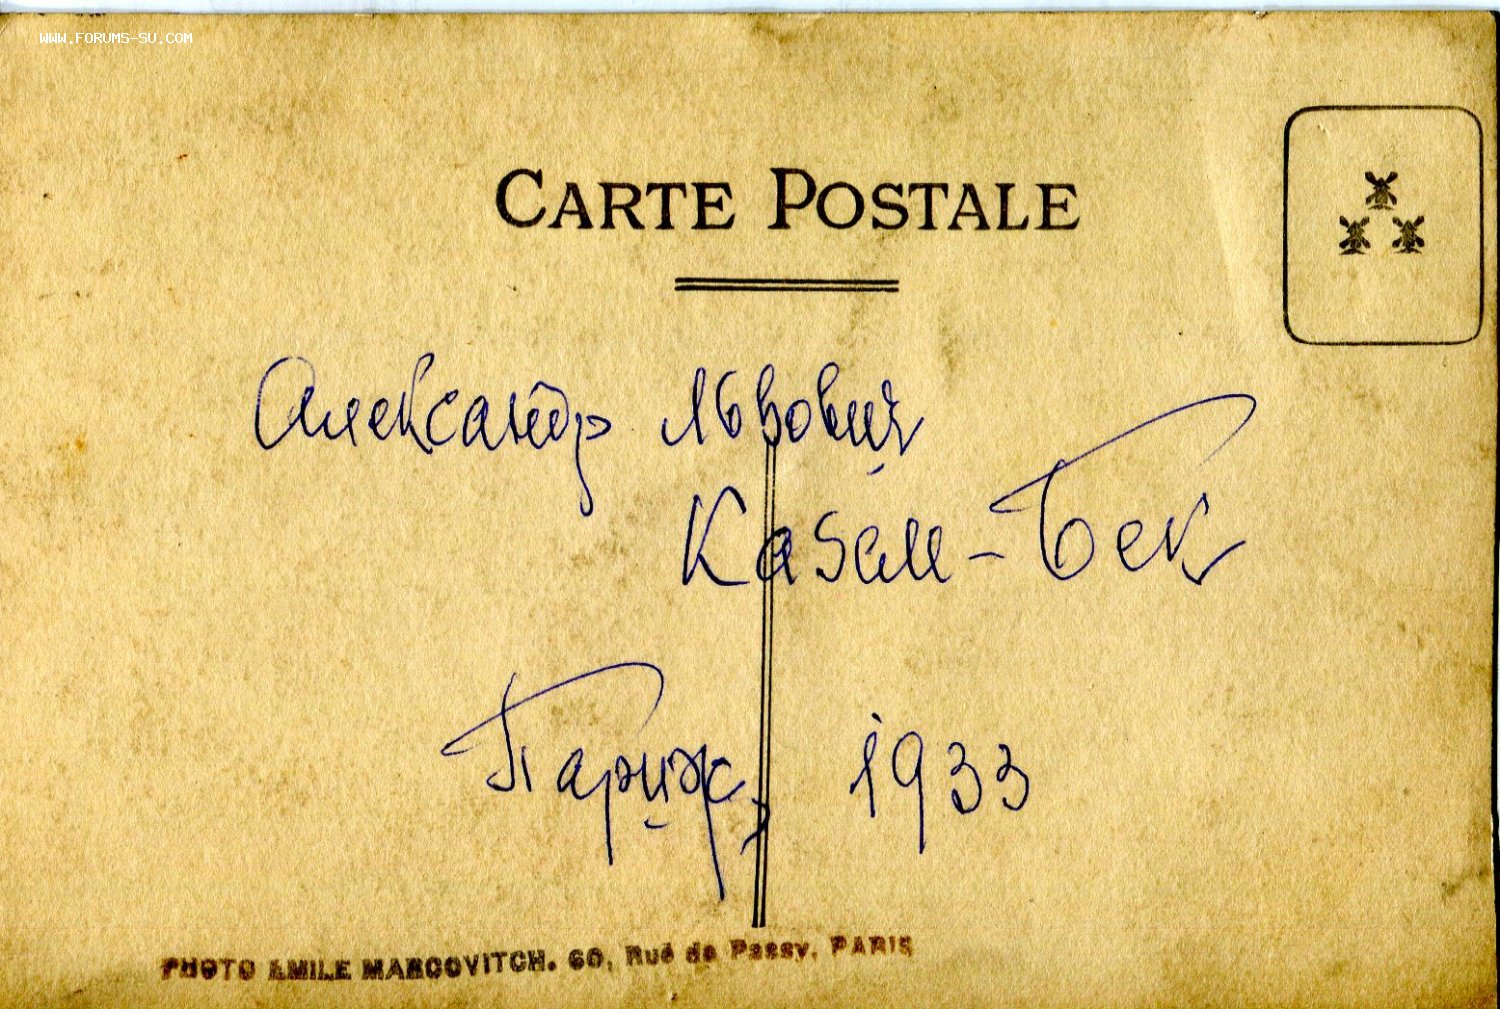 WWW.FORUMS-SU.COM
CARTE POSTALE
Александр Львович
Казем-Бек
Париж, 1933
PHOTO EMILE MARCOVITCH. 60, Rue de Passy, PARIS